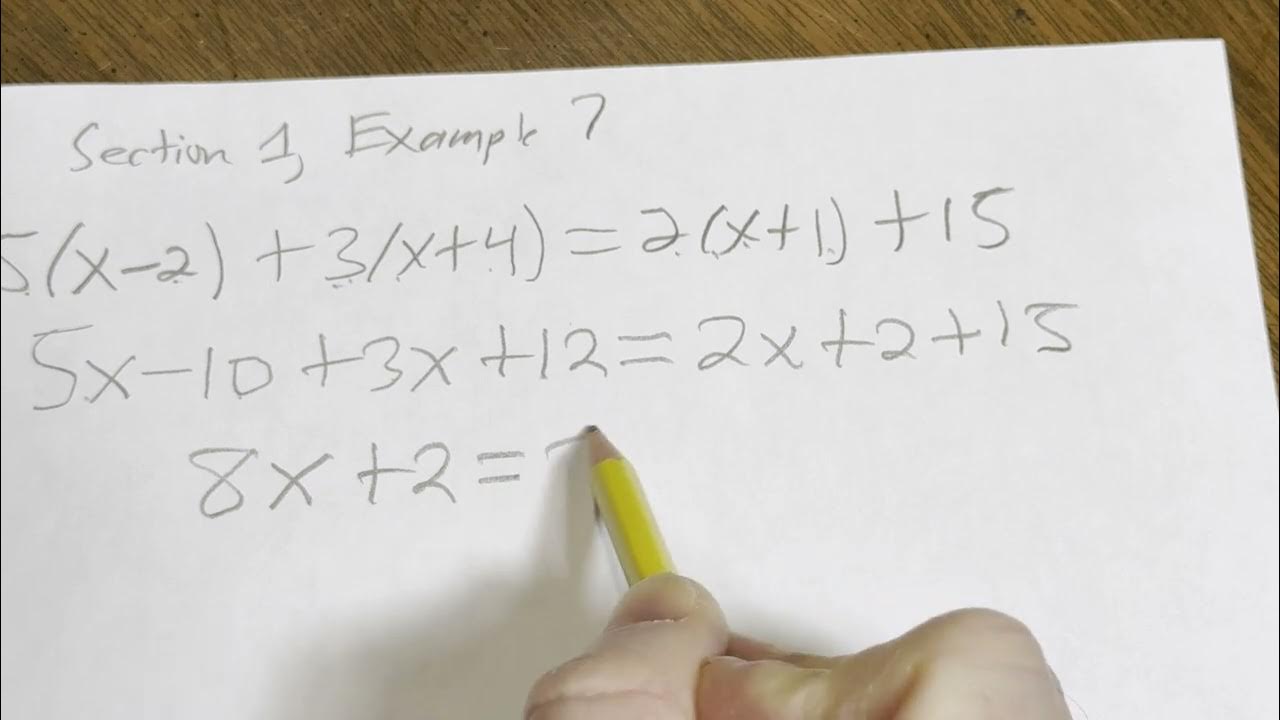 Section 1, Example 7
5(x-2) + 3(x+4) = 2(x+1) + 15
5x - 10 + 3x + 12 = 2x + 2 + 15
8x + 2 =